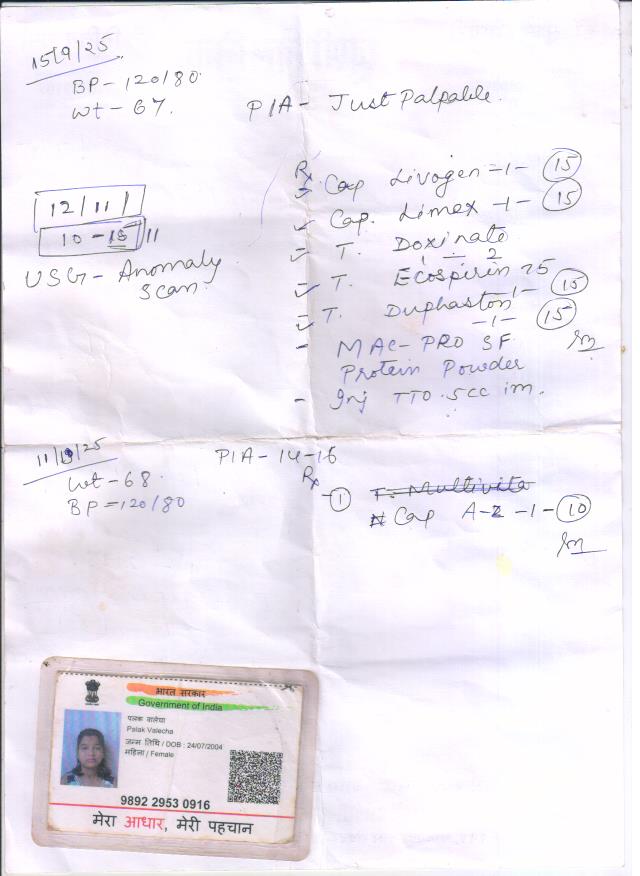 15/9/25
BP - 120/80
Wt - 67.
P/A - Just Palpable.
Rx
Cap Livogen -1- 15
Cap. Limex -1- 15
T. Doxinate
1 - 2
T. Ecospirin 75
-1- 15
T. Duphaston
-1- 15
MAC-PRO SF
Protein Powder
Inj TT 0.5cc im.
12/11/
10 - 15/11
USG - Anomaly
Scan
11/9/25
Wt - 68
BP = 120/80
P/A - 14-16
Rx
1 T. Multivita
Cap A-Z -1- 10
भारत सरकार
Government of India
पलक वालेचा
Palak Valecha
जन्म तिथि / DOB : 24/07/2004
महिला / Female
9892 2953 0916
मेरा आधार, मेरी पहचान